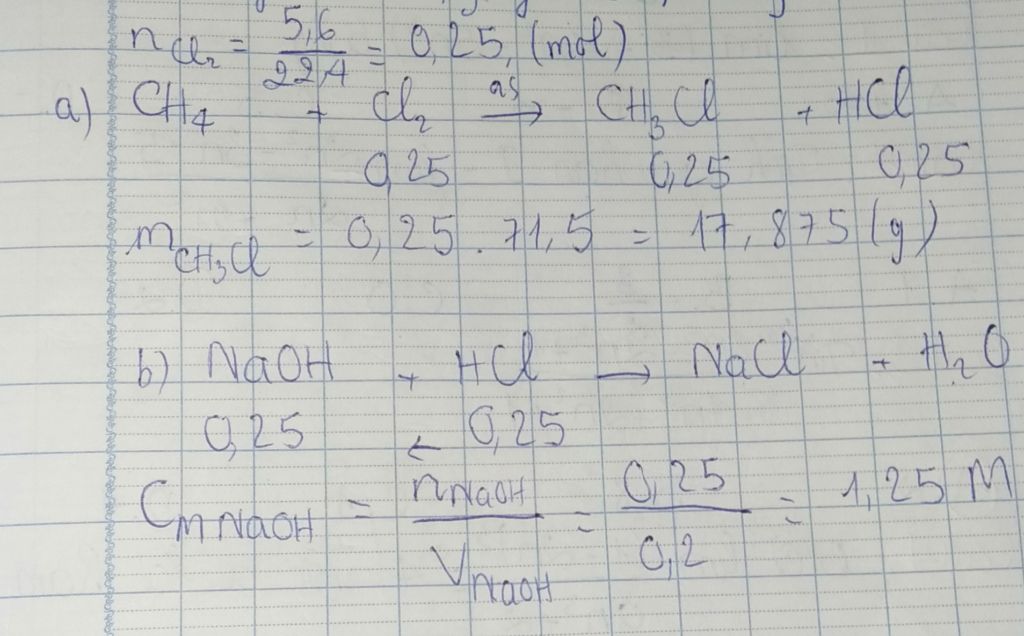 n_Cl₂ = 5,6/22,4 = 0,25 (mol)
a) CH₄ + Cl₂ as→ CH₃Cl + HCl
0,25 0,25 0,25
m_CH₃Cl = 0,25 . 71,5 = 17,875 (g)
b) NaOH + HCl → NaCl + H₂O
0,25 ← 0,25
C_M NaOH = n_NaOH/V_NaOH = 0,25/0,2 = 1,25 M